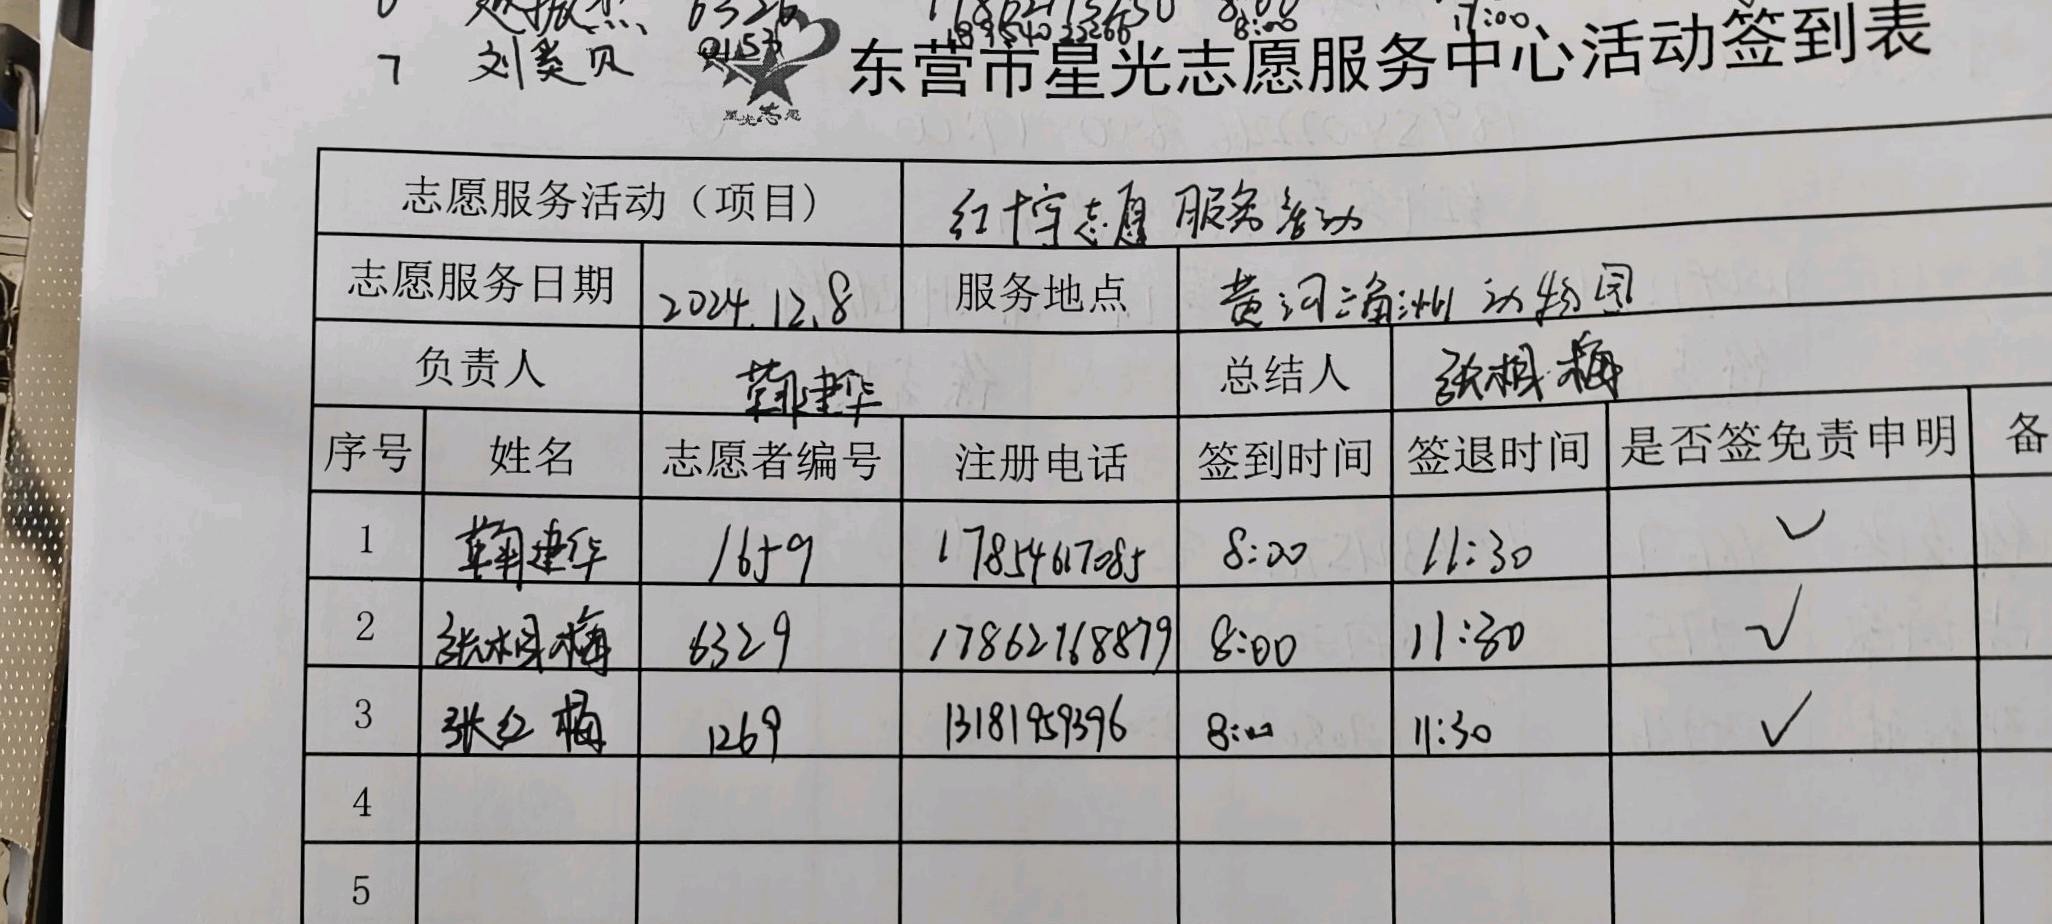 6326 8:00 17:00
7 刘美贝 0153 18954022266 8:00
东营市星光志愿服务中心活动签到表
星光志愿
志愿服务活动（项目） 红十字志愿服务活动
志愿服务日期 2024.12.8 服务地点 黄河三角洲动物园
负责人 建华 总结人 张相梅
序号 姓名 志愿者编号 注册电话 签到时间 签退时间 是否签免责申明 备
1 建华 1659 17854617085 8:00 11:30 ✓
2 张相梅 6329 17862768879 8:00 11:30 ✓
3 张红梅 1269 13181959396 8:00 11:30 ✓
4
5